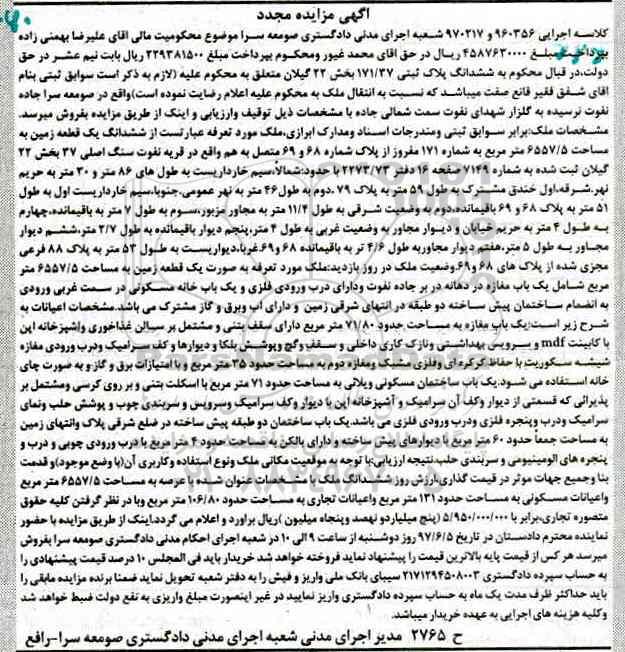 آگهی مزایده مجدد
کلاسه اجرایی ۹۶۰۳۵۶ و ۹۷۰۲۱۷ شعبه اجرای مدنی دادگستری صومعه سرا موضوع محکومیت مالی اقای علیرضا بهمنی زاده
بپرداخت مبلغ ۴۵۸۷۶۳۰۰۰۰ ریال در حق اقای محمد غیور ومحکوم بپرداخت مبلغ ۲۲۹۳۸۱۵۰۰ ریال بابت نیم عشر در حق
دولت،در قبال محکوم به ششدانگ پلاک ثبتی ۱۷۱/۳۷ بخش ۲۲ گیلان متعلق به محکوم علیه (لازم به ذکر است سوابق ثبتی بنام
اقای شفق فقیر قانع صفت میباشد که نسبت به انتقال ملک به محکوم علیه اعلام رضایت نموده است)واقع در صومعه سرا جاده
نفوت نرسیده به گلزار شهدای نفوت سمت شمالی جاده با مشخصات ذیل توقیف وارزیابی و اینک از طریق مزایده بفروش میرسد.
مشخصات ملک:برابر سوابق ثبتی ومندرجات اسناد ومدارک ابرازی،ملک مورد تعرفه عبارتست از ششدانگ یک قطعه زمین به
مساحت ۶۵۵۷/۵ متر مربع به شماره ۱۷۱ مفروز از پلاک شماره ۶۸ و ۶۹ متصل به هم واقع در قریه نفوت سنگ اصلی ۳۷ بخش ۲۲
گیلان ثبت شده به شماره ۷۱۴۹ صفحه ۱۶ دفتر ۲۲۷۳/۷۳ با حدود:شمالا،سیم خارداریست به طول های ۸۶ متر و ۳۰ متر به حریم
نهر.شرقه،اول خندق مشترک به طول ۵۹ متر به پلاک ۷۹ .دوم به طول۴۶ متر به نهر عمومی.جنوبا،سیم خارداریست اول به طول
۵۱ متر به پلاک ۶۸ و ۶۹ باقیمانده،دوم به وضعیت شرقی به طول ۱۱/۴ متر به مجاور مزبور،سوم به طول ۷ متر به باقیمانده،چهارم
به طول ۴ متر به حریم خیابان و دیوار مجاور به وضعیت غربی به طول ۴ متر،پنجم دیوار باقیمانده به طول ۲/۷ متر،ششم دیوار
مجاور به طول ۵ متر،هفتم دیوار مجاوربه طول ۴/۶ تر به باقیمانده ۶۸ و۶۹.غربا،دیواریست به طول ۵۳ متر به پلاک ۸۸ فرعی
مجزی شده از پلاک های ۶۸ و۶۹.وضعیت ملک در روز بازدید:ملک مورد تعرفه به صورت یک قطعه زمین به مساحت ۶۵۵۷/۵ متر
مربع شامل یک باب مغازه در دهانه در بر جاده نفوت ودارای درب ورودی فلزی و یک باب خانه مسکونی در سمت غربی ورودی
به انضمام ساختمان پیش ساخته دو طبقه در انتهای شرقی زمین و دارای اب وبرق و گاز مشترک می باشد.مشخصات اعیانات به
شرح زیر است:یک باب مغازه به مساحت حدود ۷۱/۸۰ متر مربع دارای سقف بتنی و مشتمل بر سالن غذاخوری واشپزخانه اپن
با کابینت mdf و سرویس بهداشتی ونازک کاری داخلی و سقف وگچ وپوشش بلکا و دیوارها و کف سرامیک ودرب ورودی مغازه
شیشه سکوریت با حفاظ کرکره ای وفلزی مشبک ومغازه دوم به مساحت حدود ۳۵ متر مربع و با امتیازات برق و گاز و به صورت چای
خانه استفاده می شود.یک باب ساختمان مسکونی ویلائی به مساحت حدود ۷۱ متر مربع با اسکلت بتنی و بر روی کرسی ومشتمل بر
پذیرائی که قسمتی از دیوار وکف آن سرامیک و آشپزخانه اپن با دیوار وکف سرامیک وسرویس و سربندی چوب و پوشش حلب ونمای
سرامیک ودرب وپنجره فلزی ودرب ورودی فلزی می باشد.یک باب ساختمان دو طبقه پیش ساخته در ضلع شرقی پلاک وانتهای زمین
به مساحت جمعاً حدود ۶۰ متر مربع با دیوارهای پیش ساخته و دارای بالکن به مساحت حدود ۴ متر مربع با درب ورودی چوبی و درب و
پنجره های الومینیومی و سربندی حلب.نتیجه ارزیابی:با توجه به موقعیت مکانی ملک ونوع استفاده وکاربری آن(با وضع موجود)و قدمت
بنا وجمیع جهات موثر در قیمت گذاری،ارزش روز ششدانگ ملک با مشخصات عنوان شده با عرصه به مساحت ۶۵۵۷/۵ متر مربع
واعیانات مسکونی به مساحت حدود ۱۳۱ متر مربع واعیانات تجاری به مساحت حدود ۱۰۶/۸۰ متر مربع وبا در نظر گرفتن کلیه حقوق
متصوره تجاری،برابر با ۵/۹۵۰/۰۰۰/۰۰۰ (پنج میلیاردو نهصد وپنجاه میلیون )ریال براورد و اعلام می گردد.اینک از طریق مزایده با حضور
نماینده محترم دادستان در تاریخ ۹۷/۶/۵ روز دوشنبه از ساعت ۹ الی ۱۰ در شعبه اجرای احکام مدنی دادگستری صومعه سرا بفروش
میرسد هر کس از قیمت پایه بالاترین قیمت را پیشنهاد نماید فروخته خواهد شد خریدار باید فی المجلس ۱۰ درصد قیمت پیشنهادی را
به حساب سپرده دادگستری ۲۱۷۱۲۹۴۵۰۸۰۰۳ سیبای بانک ملی واریز و فیش را به دفتر شعبه تحویل نماید ضمنا برنده مزایده مابقی را
باید حداکثر ظرف مدت یک ماه به حساب سپرده دادگستری واریز نمایید در غیر اینصورت مبلغ واریزی به نفع دولت ضبط خواهد شد
وکلیه هزینه های اجرایی به عهده خریدار میباشد.
ح ۲۷۶۵ مدیر اجرای مدنی شعبه اجرای مدنی دادگستری صومعه سرا-رافع